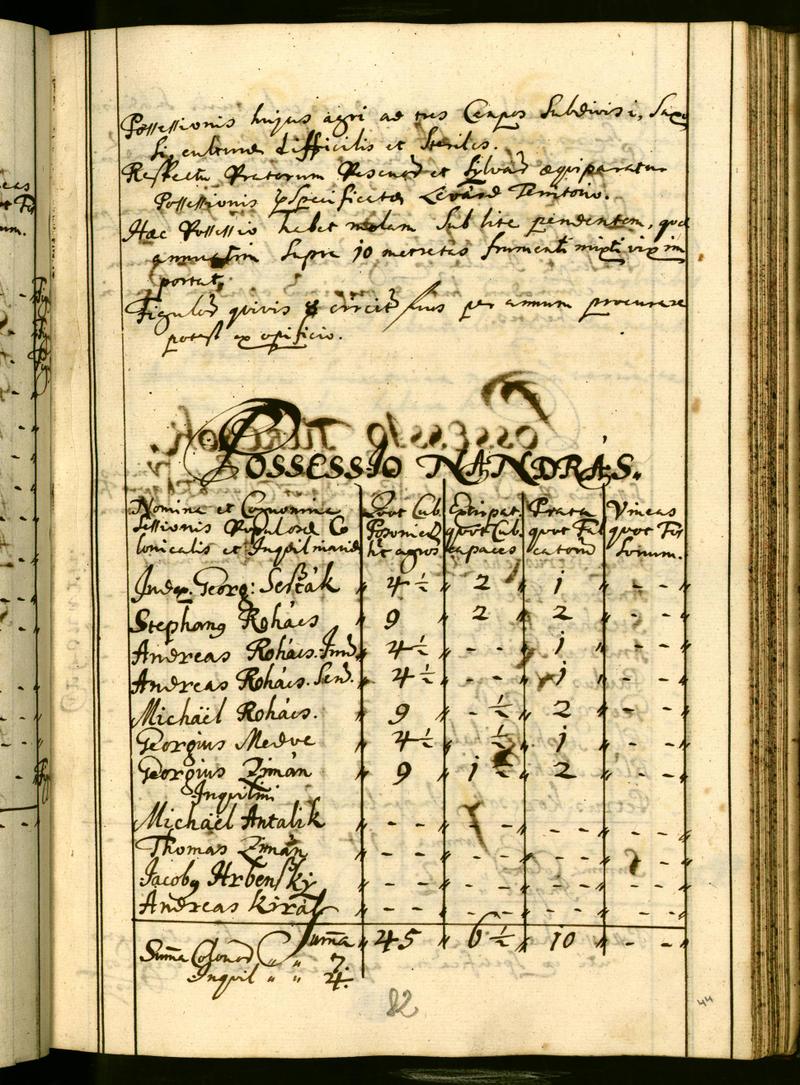 Possessionis hujus agri ad tres Campos Subdivisi, Saxo
si, culturae difficilis et Steriles.
Respectu Pratorum Pascuor et Sylvar aequiparatur
Possessionis Specificatae Levárd Territorio.
Haec Possessio habet molam Sub lite pendentem, quae
annuatim Supra 10 metretas frumenti mixti vix im
portat.
Figulor quivis 8 circit flnos per annum procurare
potest ex opificio.
POSSESSIO NANDRÁS.
Nomina et Cognomina
Sessionis Populorum Co
lonicalis et Inquilinariae
Quot Cub.
Posonien
sit agros
Extirpat.
quot Cub.
capaces
Prata
quot Fal
catorum
Vineas
quot Fos
sorum.
Judex Georg: Sesták " 4½ " 2 " 1 " - - "
Stephang Rohács 9 " 2 " 2 " - - "
Andreas Rohács. Jun " 4½ " - - " 1 " - - "
Andreas Rohács. Sen. " 4½ " - - " 1 " - - "
Michäel Rohács. 9 " - ½ " 2 " - - "
Georgius Medve 4½ " ½ " 1 " - - "
Georgius Zimán 9 " 1 ½ " 2 " - - "
Inquilini
Michäel Antalik " - - " - - " - - " - - "
Thomas Zimán " - - " - - " - - " - - "
Jacobg Hrbenszky " - - " - - " - - " - - "
Andreas Király " - - " - - " - - " - - "
Summa " 45 " 6½ " 10 " - - "
Suma Colonor " " 7.
Inquil " " 4.
82
44